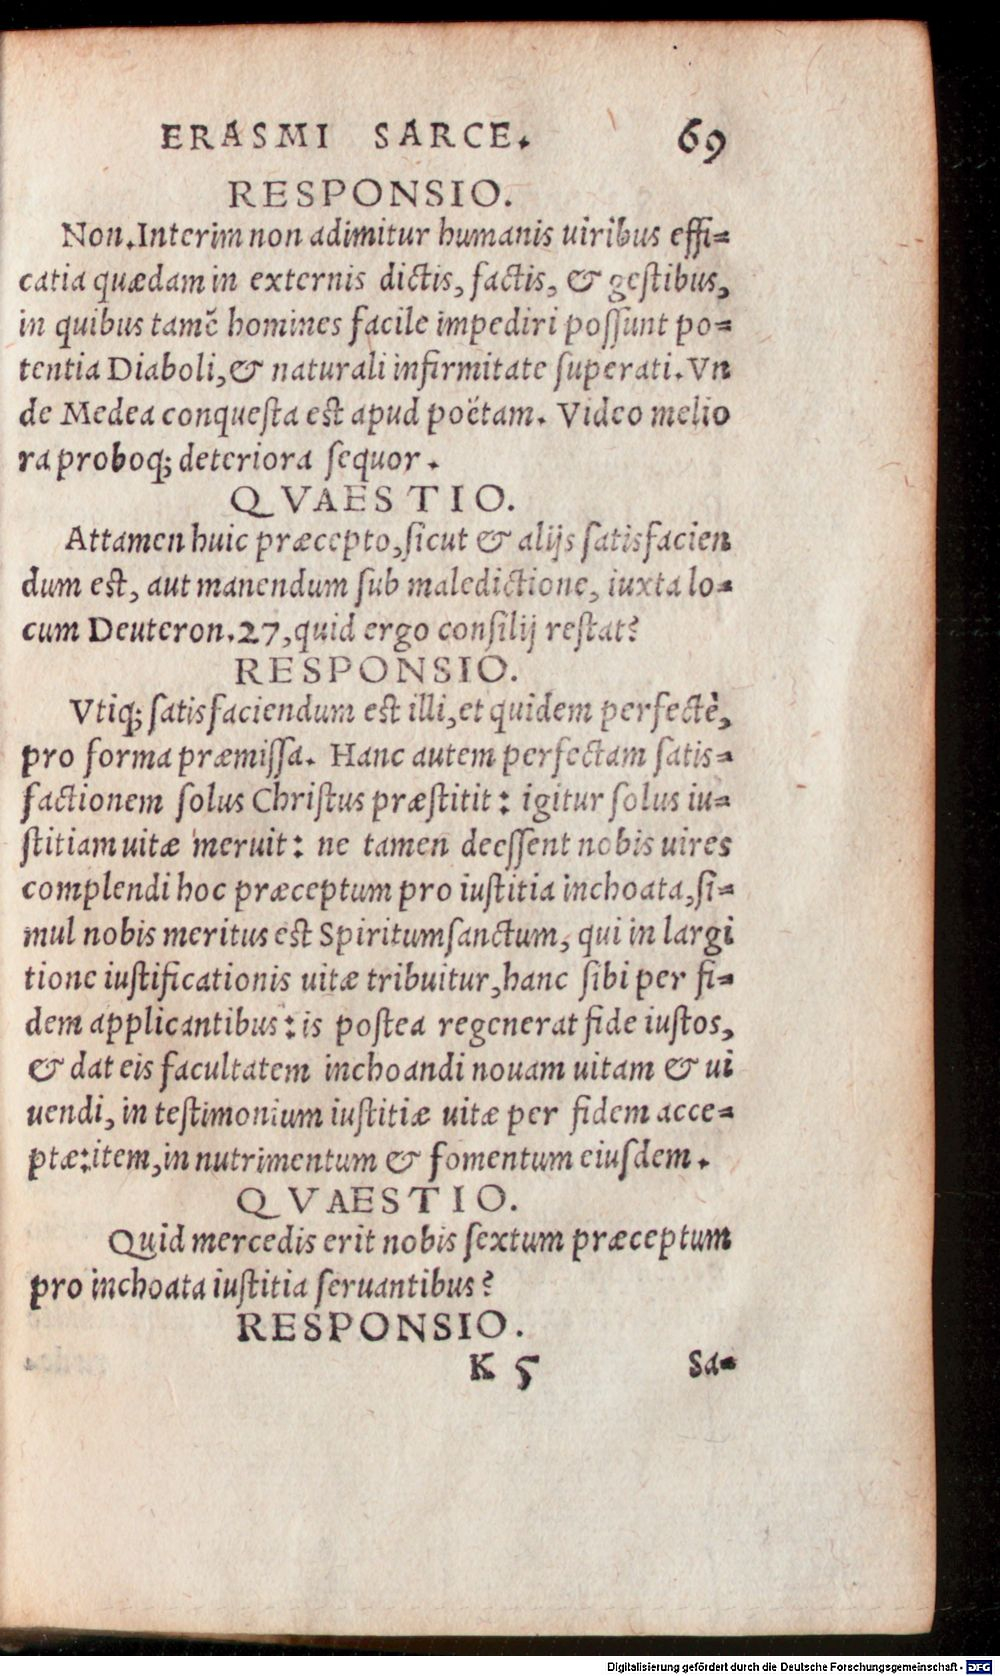 ERASMI SARCE. 69
RESPONSIO.
Non. Interim non adimitur humanis uiribus effi-
catia quædam in externis dictis, factis, & gestibus,
in quibus tamē homines facile impediri possunt po-
tentia Diaboli, & naturali infirmitate superati. Vn
de Medea conquesta est apud poëtam. Video melio
ra proboq; deteriora sequor.
QVAESTIO.
Attamen huic præcepto, sicut & alijs satisfacien
dum est, aut manendum sub maledictione, iuxta lo-
cum Deuteron. 27, quid ergo consilij restat?
RESPONSIO.
Vtiq; satisfaciendum est illi, et quidem perfectè,
pro forma præmissa. Hanc autem perfectam satis-
factionem solus Christus præstitit: igitur solus iu-
stitiam uitæ meruit: ne tamen deessent nobis uires
complendi hoc præceptum pro iustitia inchoata, si-
mul nobis meritus est Spiritumsanctum, qui in largi
tione iustificationis uitæ tribuitur, hanc sibi per fi-
dem applicantibus: is postea regenerat fide iustos,
& dat eis facultatem inchoandi nouam uitam & ui
uendi, in testimonium iustitiæ uitæ per fidem acce-
ptæ: item, in nutrimentum & fomentum eiusdem.
QVAESTIO.
Quid mercedis erit nobis sextum præceptum
pro inchoata iustitia seruantibus?
RESPONSIO.
K 5 Sa-
Digitalisierung gefördert durch die Deutsche Forschungsgemeinschaft - DFG